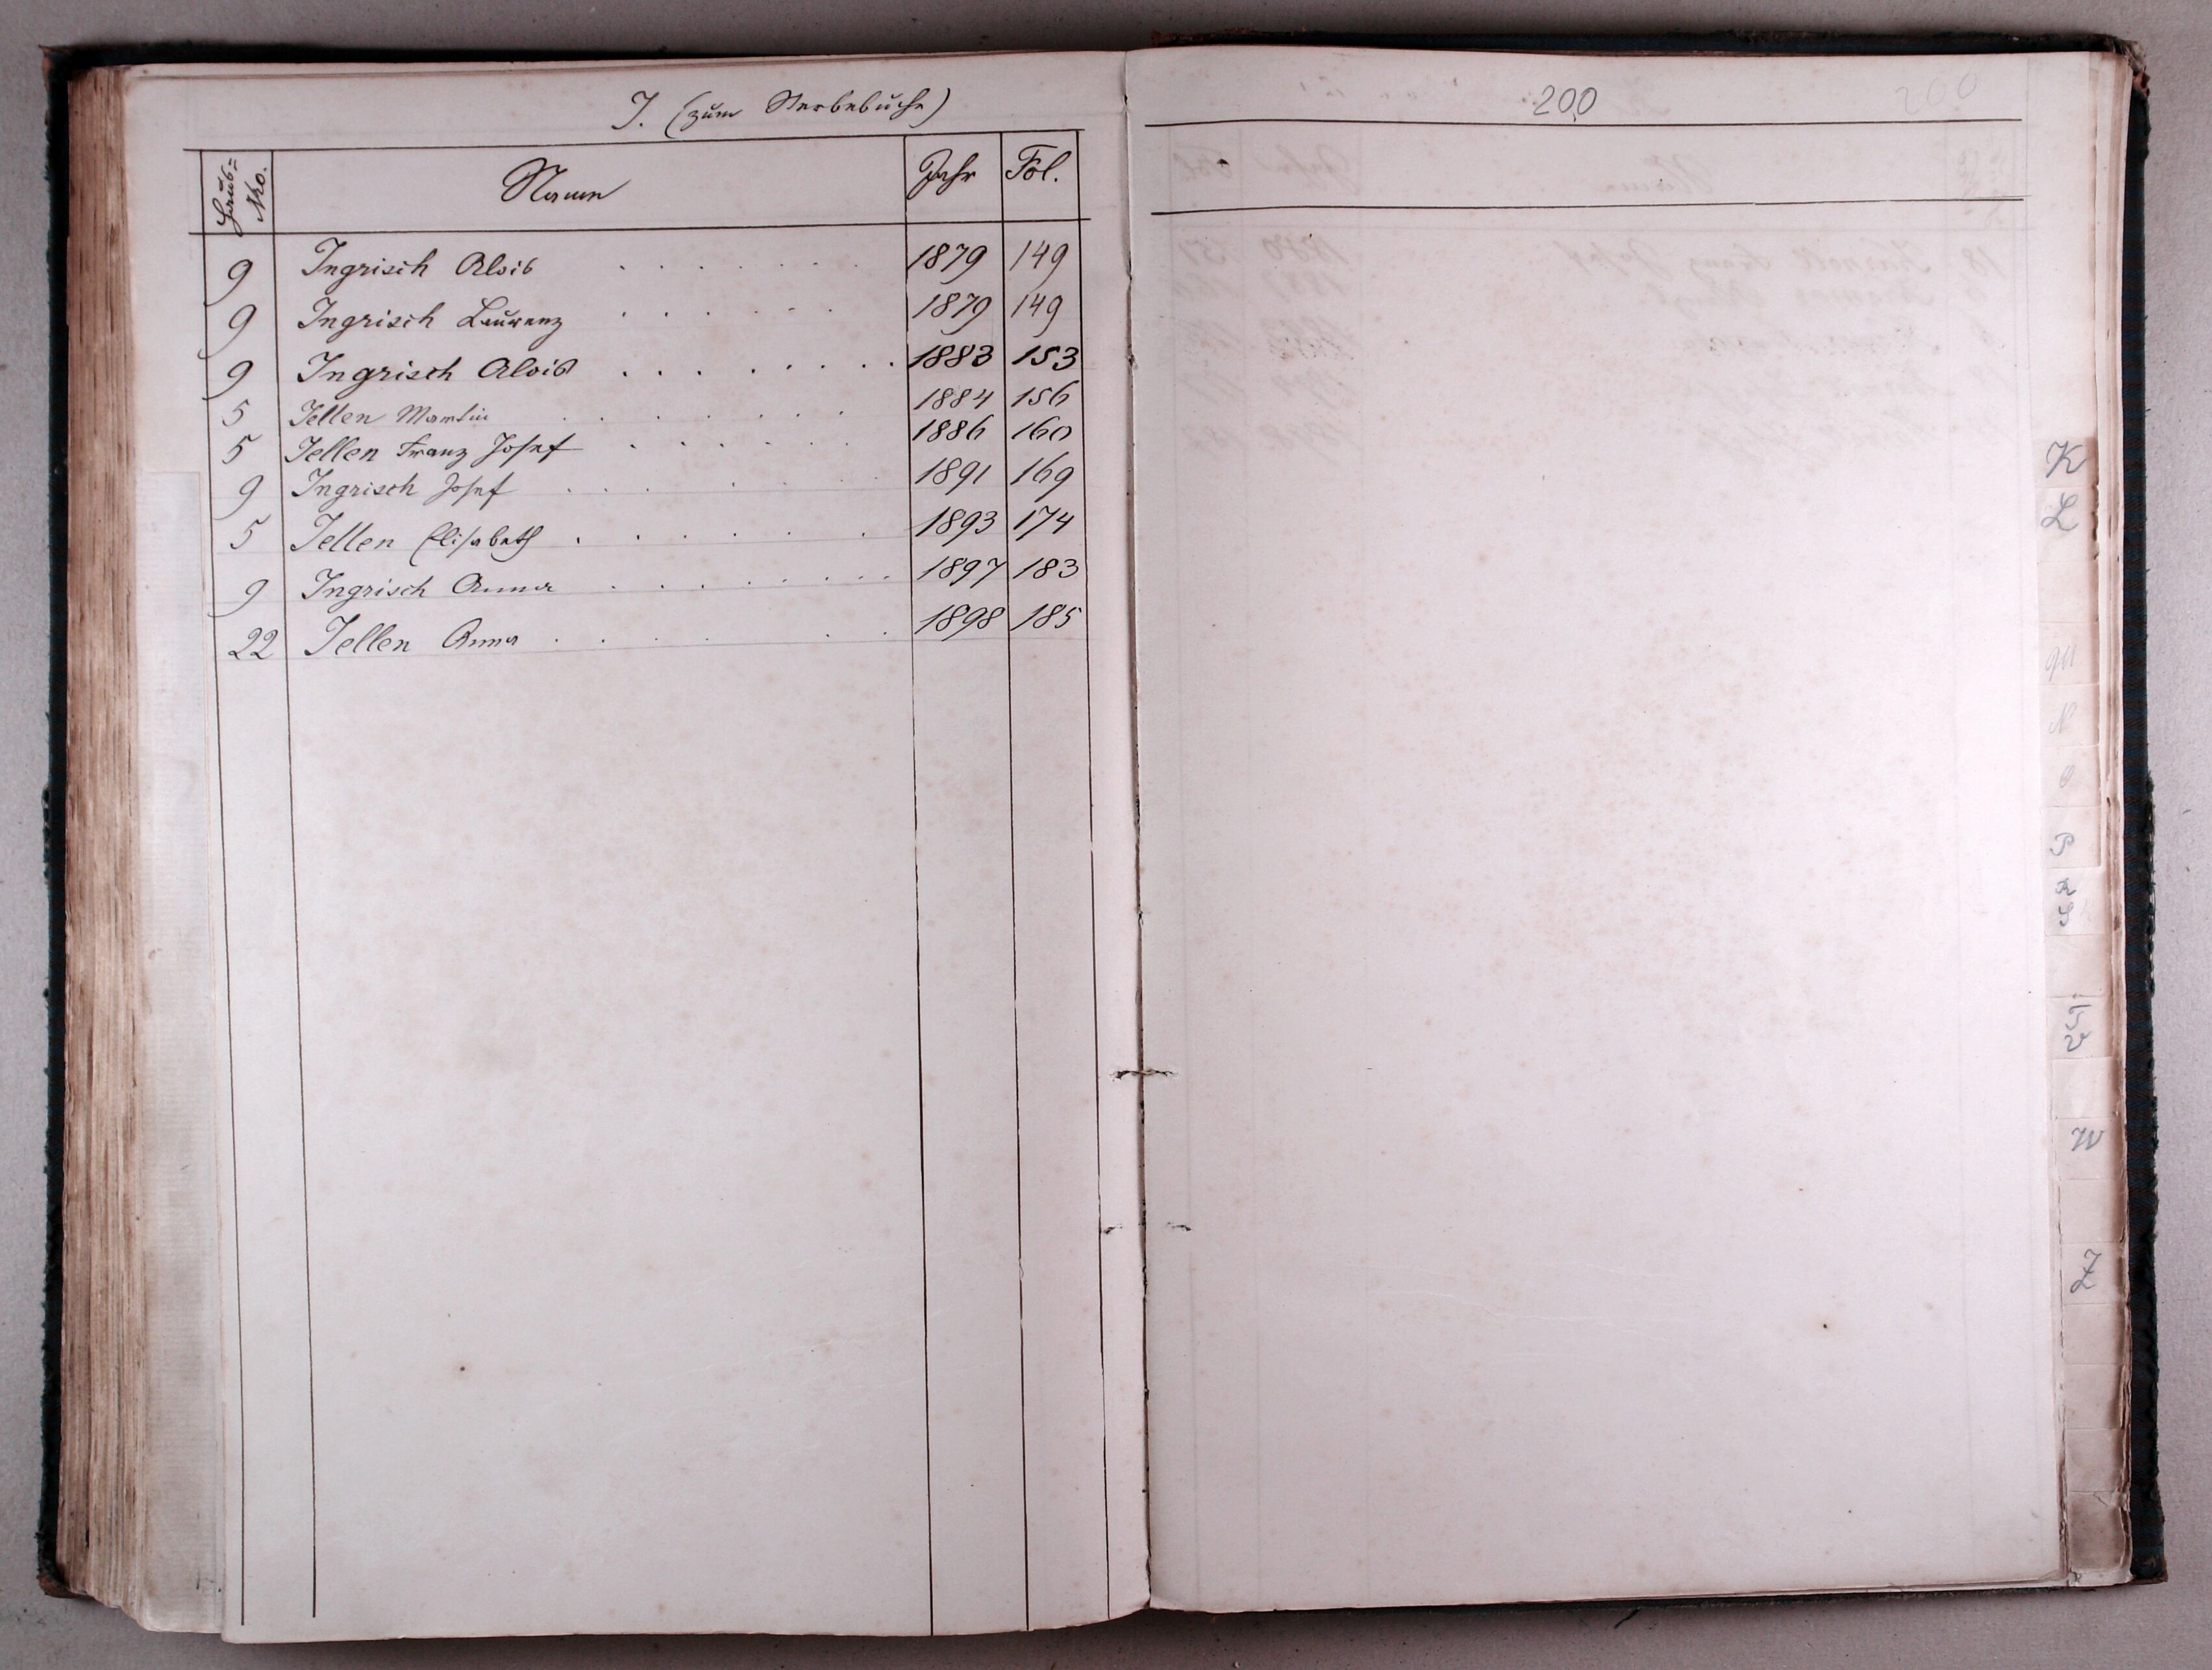 J. (zum Sterbebuche)
Haus= Nro. Namen Jahr Fol.
9 Ingrisch Alois 1879 149
9 Ingrisch Laurenz 1879 149
9 Ingrisch Alois 1883 153
5 Jellen Martin 1884 156
5 Jellen Franz Josef 1886 160
9 Ingrisch Josef 1891 169
5 Jellen Elisabeth 1893 174
9 Ingrisch Anna 1897 183
22 Jellen Anna 1898 185
200
200
K
L
M
N
O
P
R
S
W
Z